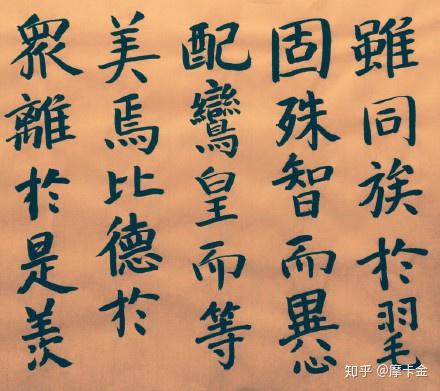 雖同族於羽毛
固殊智而異心
配鸞皇而等
美焉比德於
眾離於是羨
知乎 @摩卡金